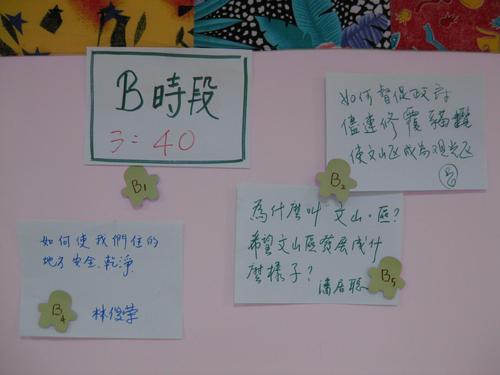 B 時段
3:40
B1
如何督促政府
儘連修覆貓纜
使文山區成為觀光區
B2
為什麼叫"文山.區?
希望文山區發展成什
麼樣子?
潘居聰
B5
如何使我們住的
地方安全.乾淨
林俊榮
B4